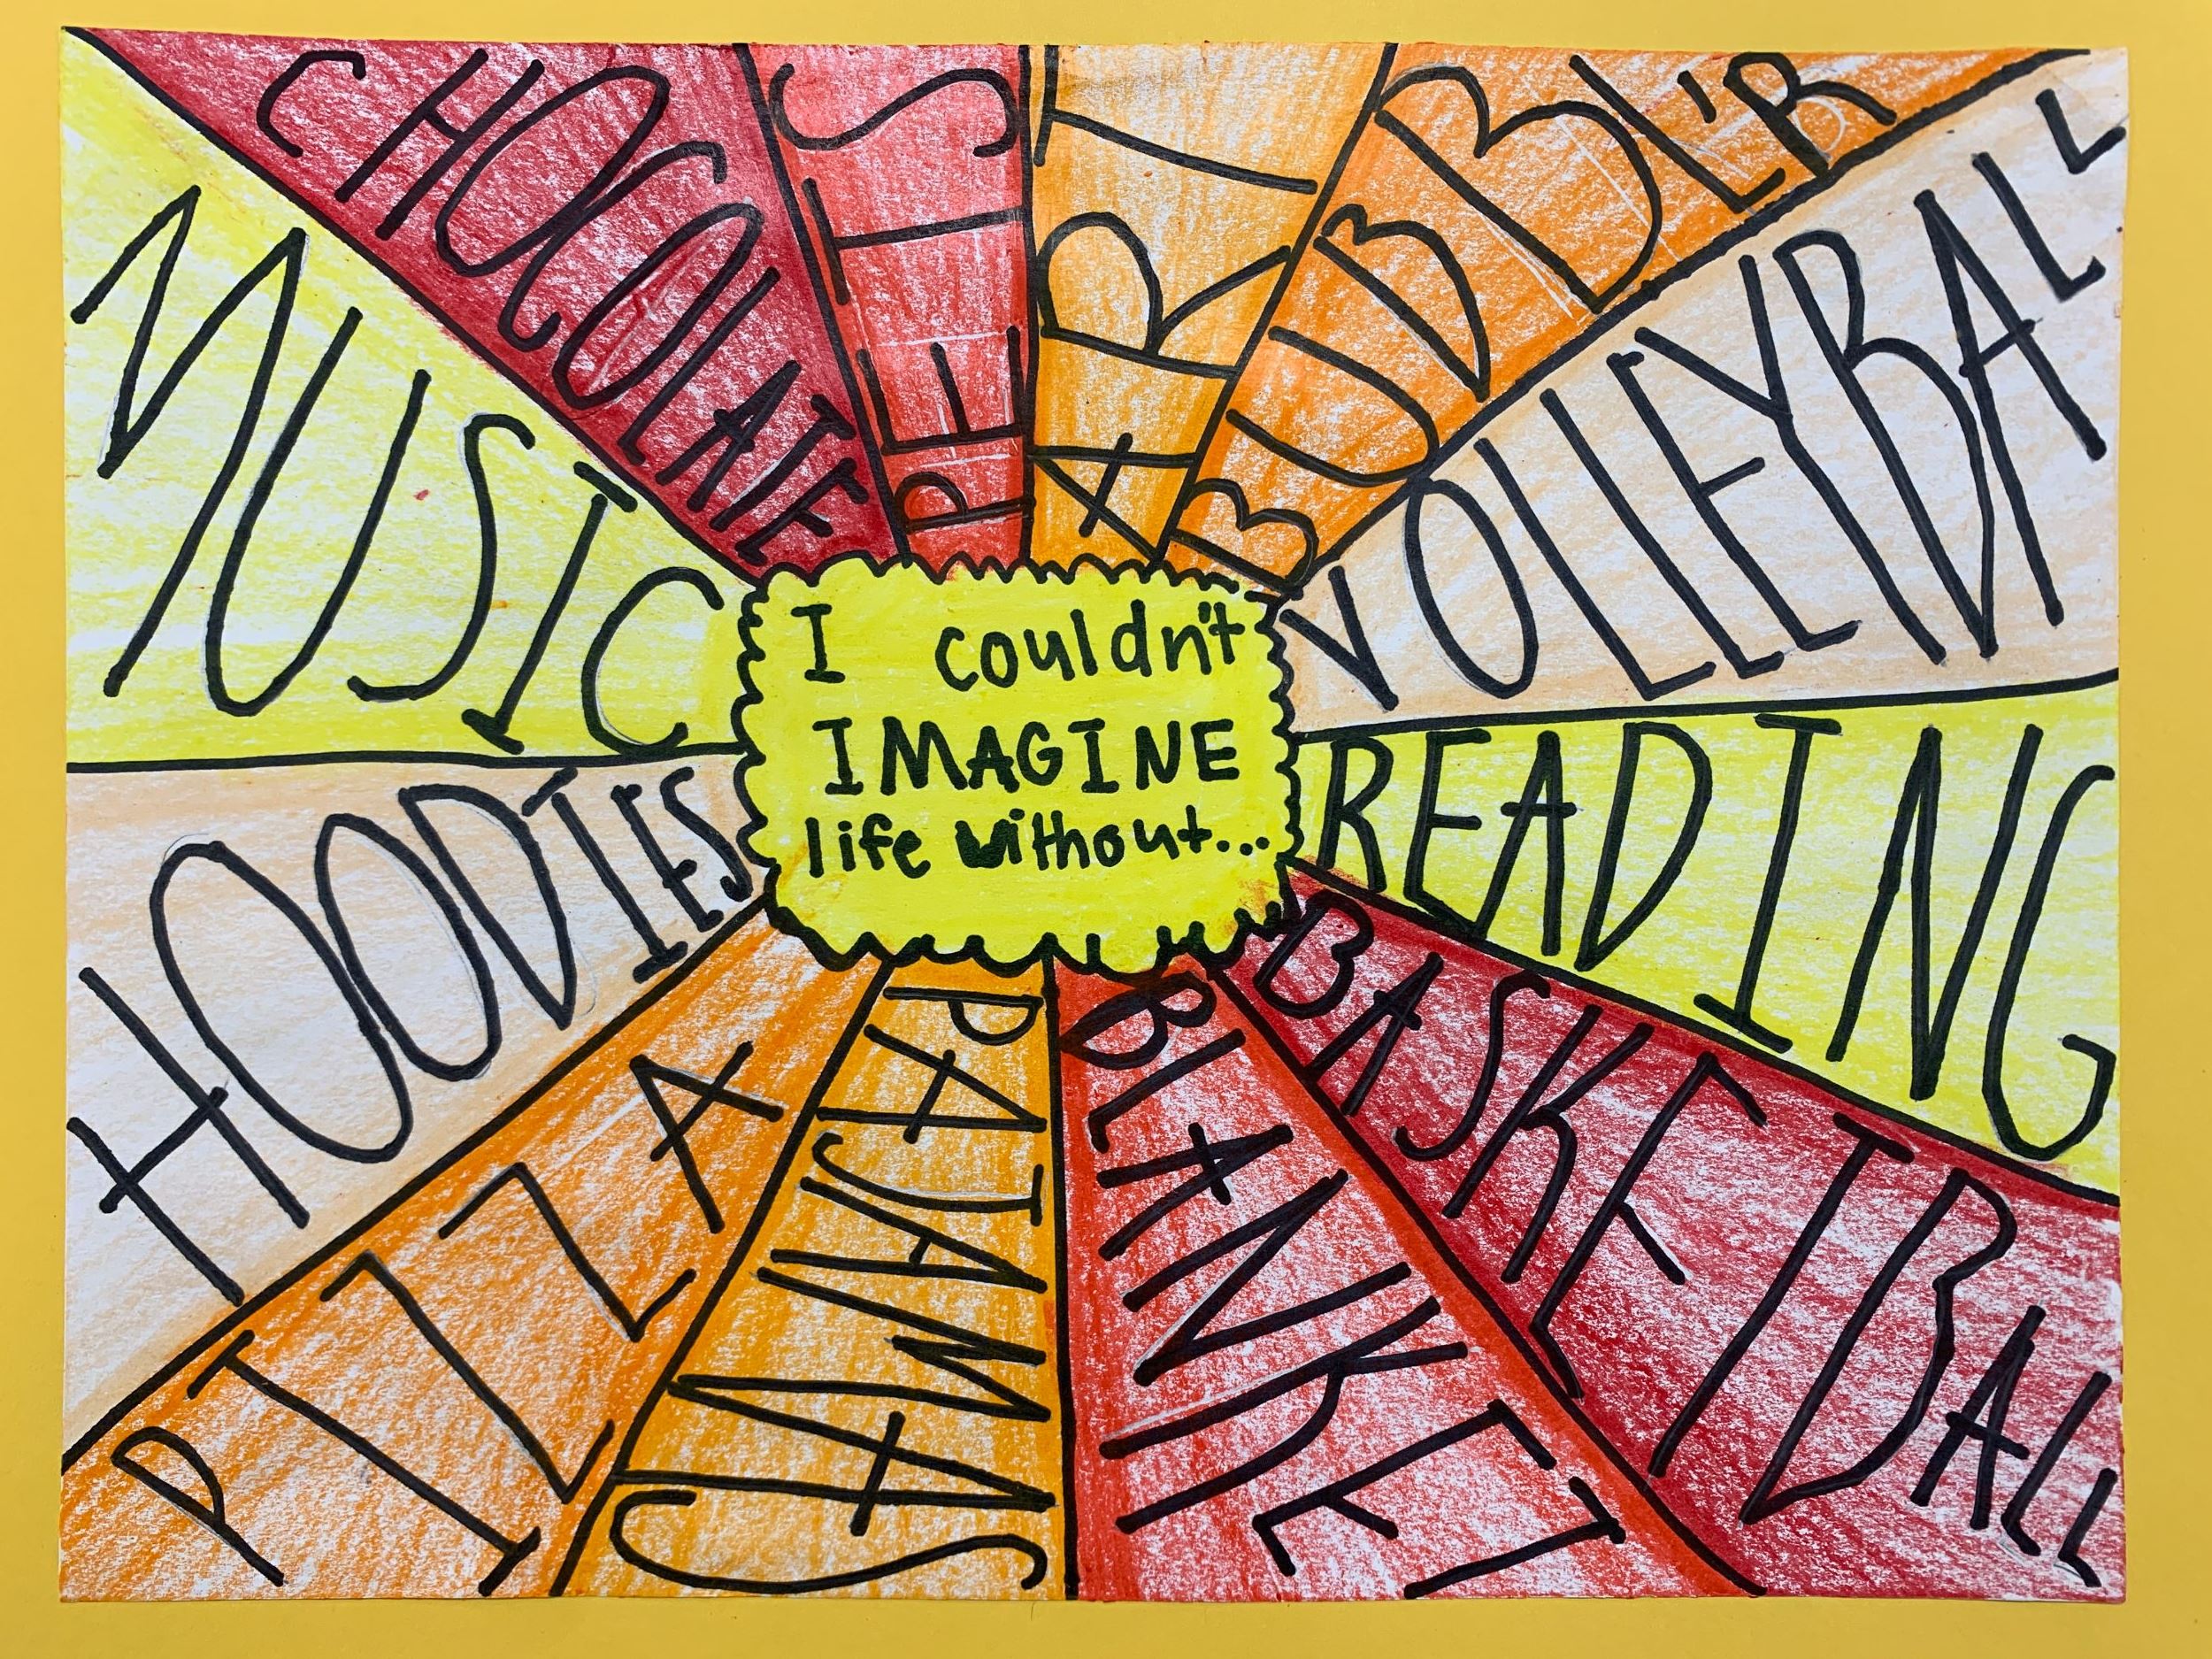 I couldn't
IMAGINE
life without...
CHOCOLATE
PETS
ART
BUBBL'R
VOLLEYBALL
READING
BASKETBALL
BLANKET
PAJAMAS
PIZZA
HOODIES
MUSIC